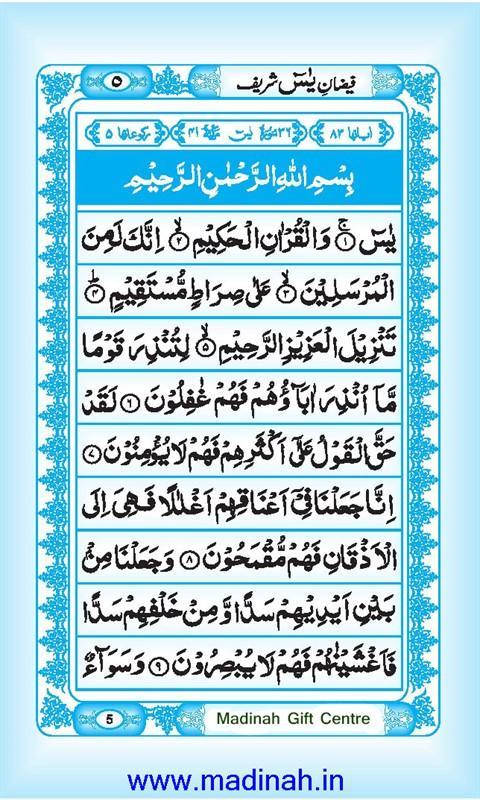 ۵
فیضانِ یٰسٓ شریف
اٰیاتها ۸۳ ۳۶ سُوْرَۃُ یٰسٓ مَکِّیَّۃٌ ۴۱ رکوعاتها ۵
بِسْمِ اللّٰهِ الرَّحْمٰنِ الرَّحِیْمِ
یٰسٓ ۚ﴿۱﴾ وَالْقُرْاٰنِ الْحَکِیْمِ ۙ﴿۲﴾ اِنَّكَ لَمِنَ
الْمُرْسَلِیْنَ ۙ﴿۳﴾ عَلٰی صِرَاطٍ مُّسْتَقِیْمٍ ؕ﴿۴﴾
تَنْزِیْلَ الْعَزِیْزِ الرَّحِیْمِ ۙ﴿۵﴾ لِتُنْذِرَ قَوْمًا
مَّاۤ اُنْذِرَ اٰبَآؤُهُمْ فَهُمْ غٰفِلُوْنَ ﴿۶﴾ لَقَدْ
حَقَّ الْقَوْلُ عَلٰۤی اَكْثَرِهِمْ فَهُمْ لَا یُؤْمِنُوْنَ ﴿۷﴾
اِنَّا جَعَلْنَا فِیْۤ اَعْنَاقِهِمْ اَغْلٰلًا فَهِیَ اِلَی
الْاَذْقَانِ فَهُمْ مُّقْمَحُوْنَ ﴿۸﴾ وَجَعَلْنَا مِنْۢ
بَیْنِ اَیْدِیْهِمْ سَدًّا وَّمِنْ خَلْفِهِمْ سَدًّا
فَاَغْشَیْنٰهُمْ فَهُمْ لَا یُبْصِرُوْنَ ﴿۹﴾ وَسَوَآءٌ
5
Madinah Gift Centre
www.madinah.in